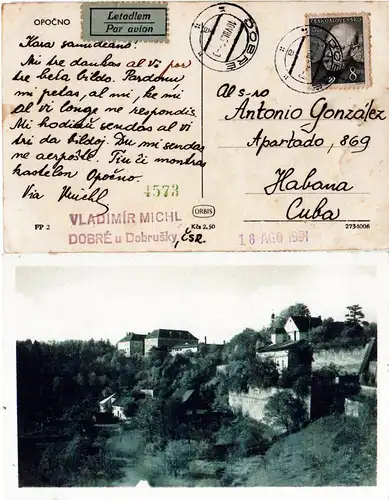 OPOČNO
Letadlem
Par avion
Kara samideano!
Mi tre dankas al Vi por
tre bela bildo. Pardonu
mi petas, al mi, ke mi
al Vi longe ne respondis.
Mi hodiaŭ sendas al Vi
tri da bildoj. Du mi sendas
ne aerpoŝte. Tiu ĉi montras
kastelon Opočno.
Via Michl
4573
VLADIMÍR MICHL
DOBRÉ u Dobrušky, ČSR.
FP 2
ORBIS
Kčs 2.50
DOBRÉ
ČESKOSLOVENSKO
8
Al s-ro
Antonio González
Apartado, 869
Habana
Cuba
16 AGO 1951
2734006